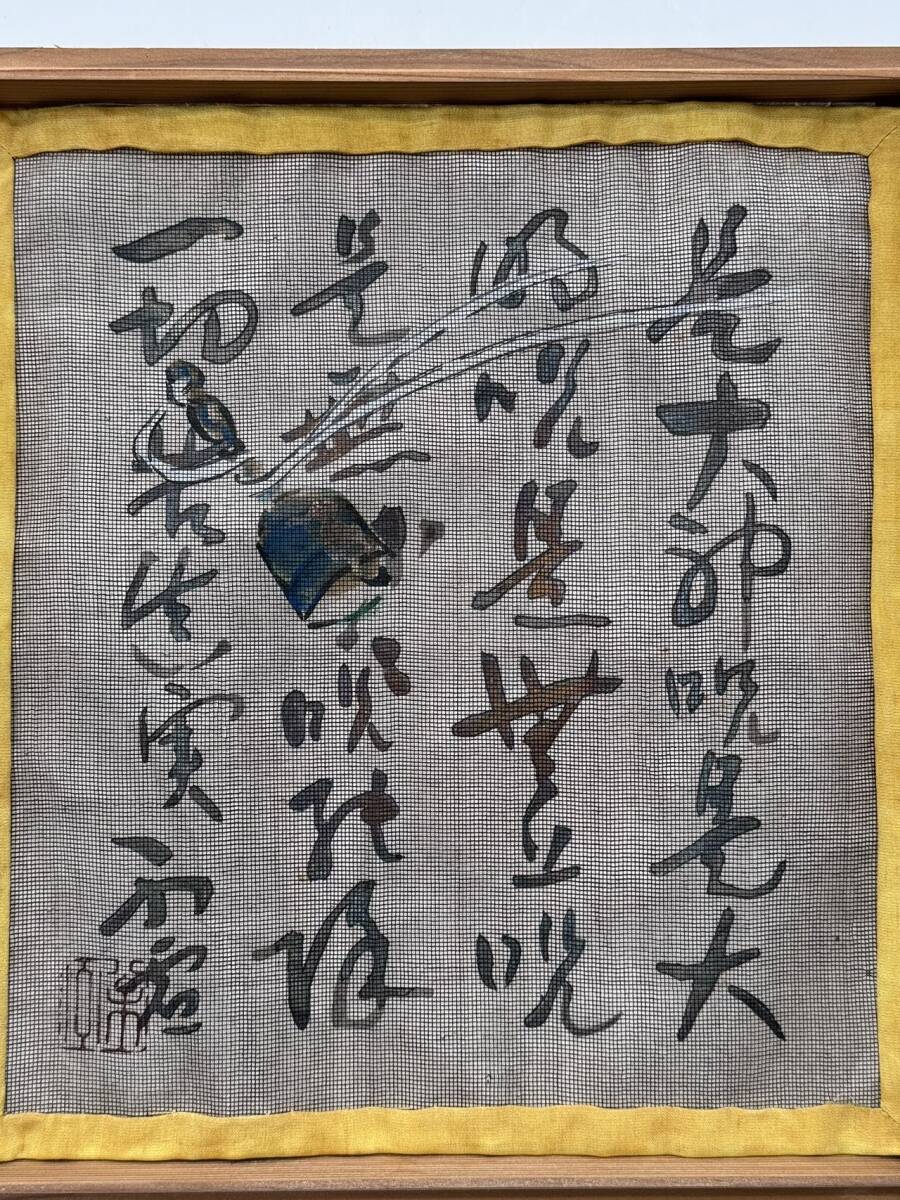 是大神呪是大
明呪是無上呪
是無呪能除
一切苦真実不虚